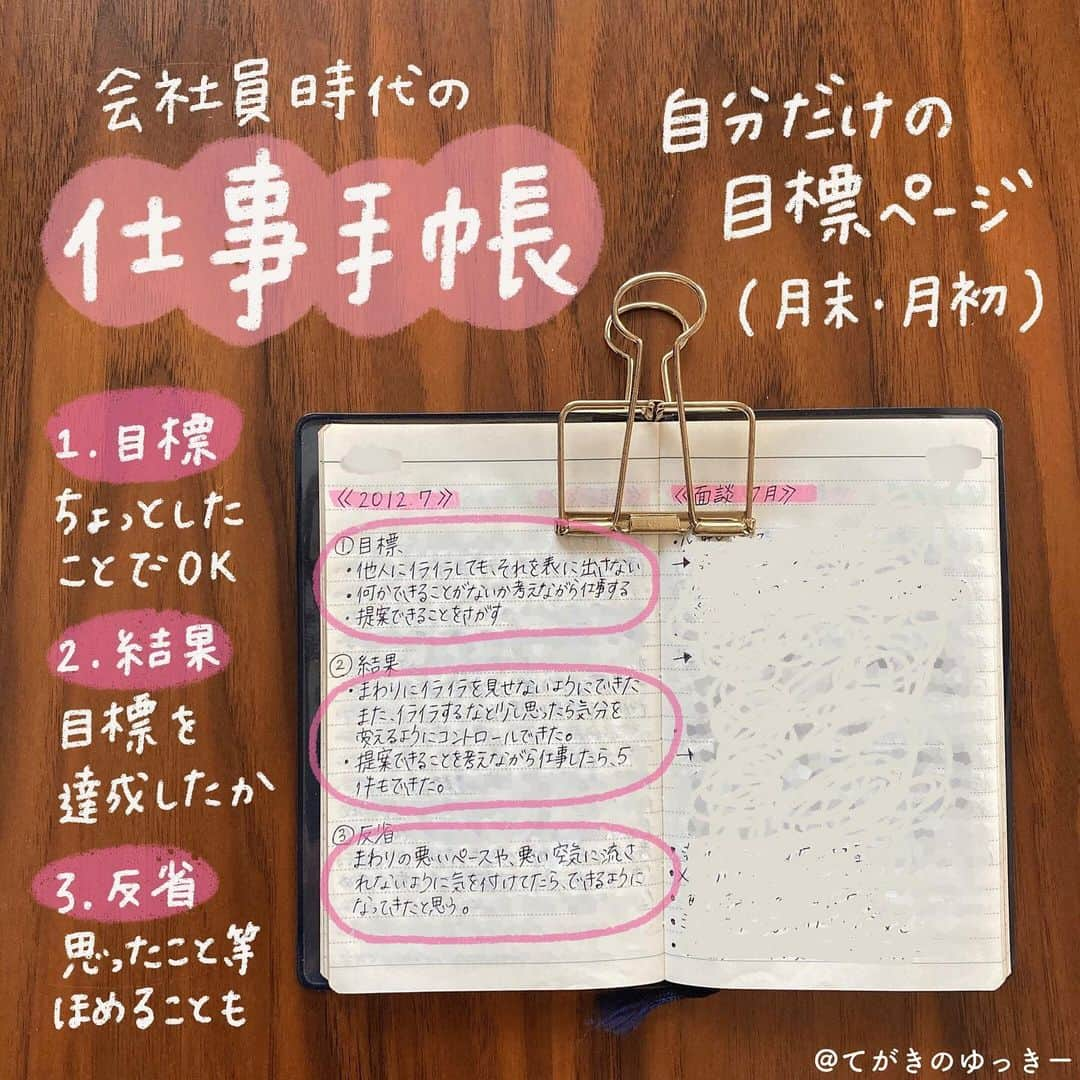 会社員時代の
仕事手帳
自分だけの
目標ページ
(月末・月初)
1.目標
ちょっとした
ことでOK
2.結果
目標を
達成したか
3.反省
思ったこと等
ほめることも
《2012.7》
①目標
・他人にイライラしても、それを表に出さない
・何かできることがないか考えながら仕事する
・提案できることをさがす
②結果
・まわりにイライラを見せないようにできた
また、イライラするなと少し思ったら気分を
変えるようにコントロールできた。
・提案できることを考えながら仕事したら、5
件もできた。
③反省
まわりの悪いペースや、悪い空気に流さ
れないように気を付けてたら、できるように
なってきたと思う。
《面談 7月》
@てがきのゆっきー